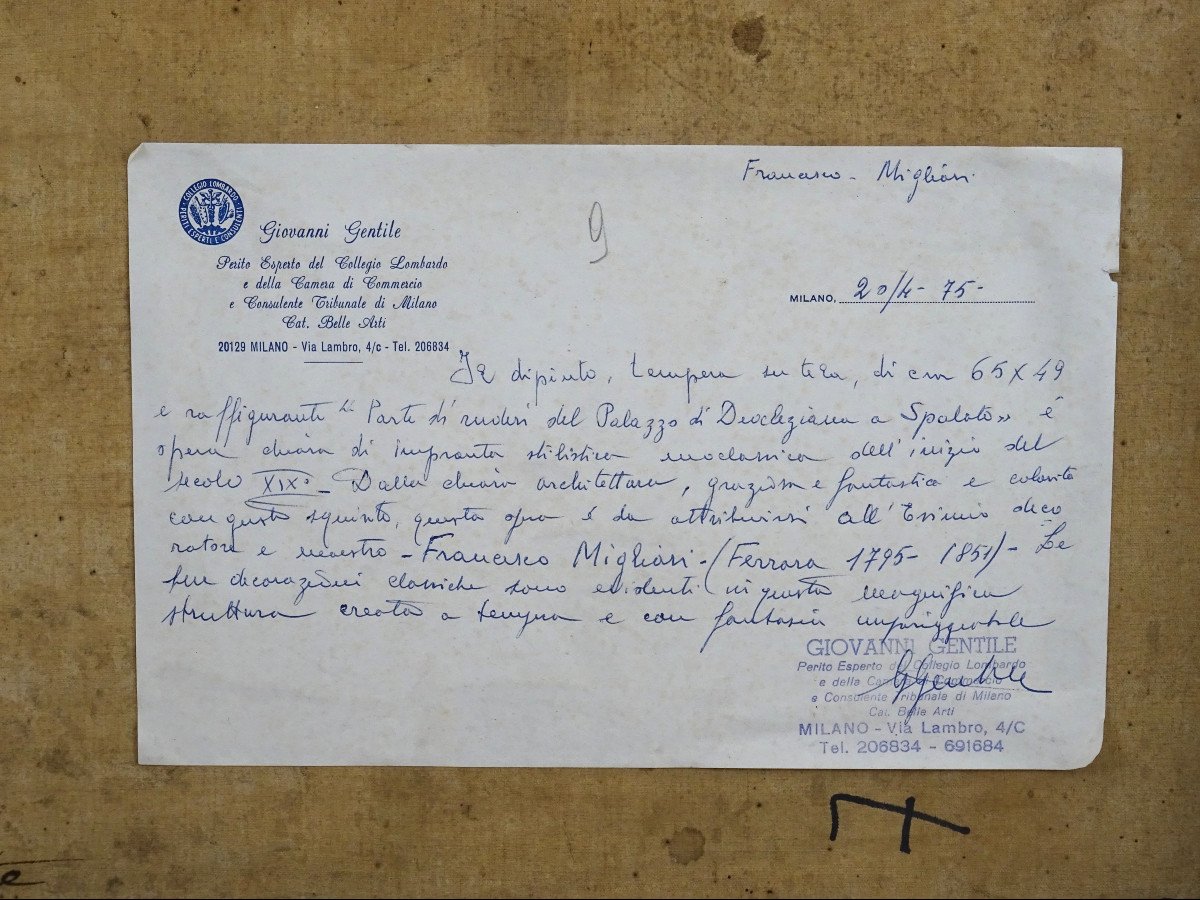 Francesco - Migliari
COLLEGIO LOMBARDO
PERITI ESPERTI E CONSULENTI
Giovanni Gentile
9
Perito Esperto del Collegio Lombardo
e della Camera di Commercio
e Consulente Tribunale di Milano
Cat. Belle Arti
20129 MILANO - Via Lambro, 4/c - Tel. 206834
MILANO, 20/4- 75-
Il dipinto, tempera su tela, di cm 65x49
e raffigurante "Parte di ruderi del Palazzo di Diocleziano a Spalato» é
opera chiara di impronta stilistica neoclassica dell'inizio del
secolo XIX°- Dalla chiara architettura, graziosa e fantastica e colorita
con gusto squisito, questa opera é da attribuirsi all'Esimio deco
ratore e maestro - Francesco Migliari - (Ferrara 1795- 1851) - Le
sue decorazioni classiche sono evidenti in questa magnifica
struttura creata a tempera e con fantasia impareggiabile
GGentile
GIOVANNI GENTILE
Perito Esperto del Collegio Lombardo
e della Camera di Commercio
e Consulente Tribunale di Milano
Cat. Belle Arti
MILANO - Via Lambro, 4/C
Tel. 206834 - 691684